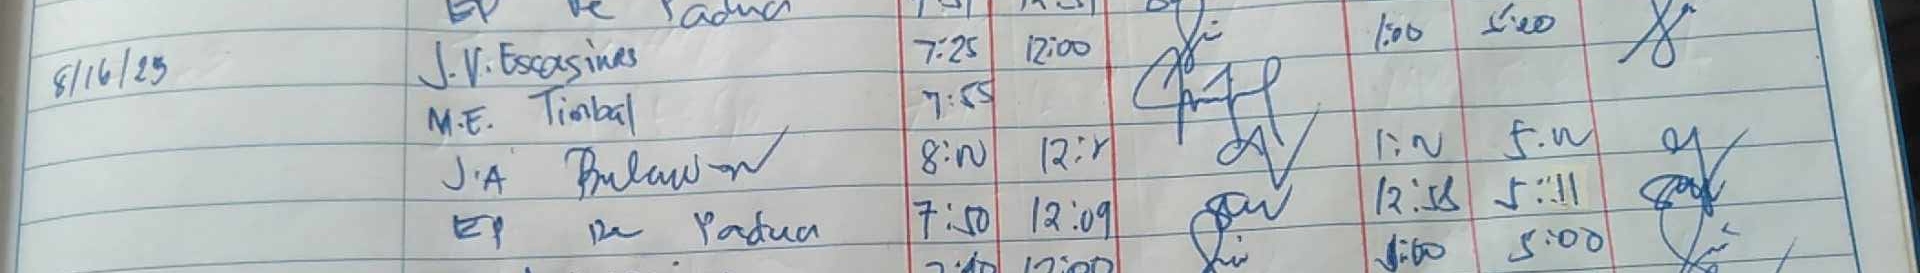 EP De Padua
8/16/25 J.V. Escasinas 7:25 12:00 1:00 5:00
M.E. Timbal 7:55
J.A Bulawan 8:00 12:00 1:00 5:00
EP De Padua 7:50 12:09 12:58 5:11
12:00 1:00 5:00